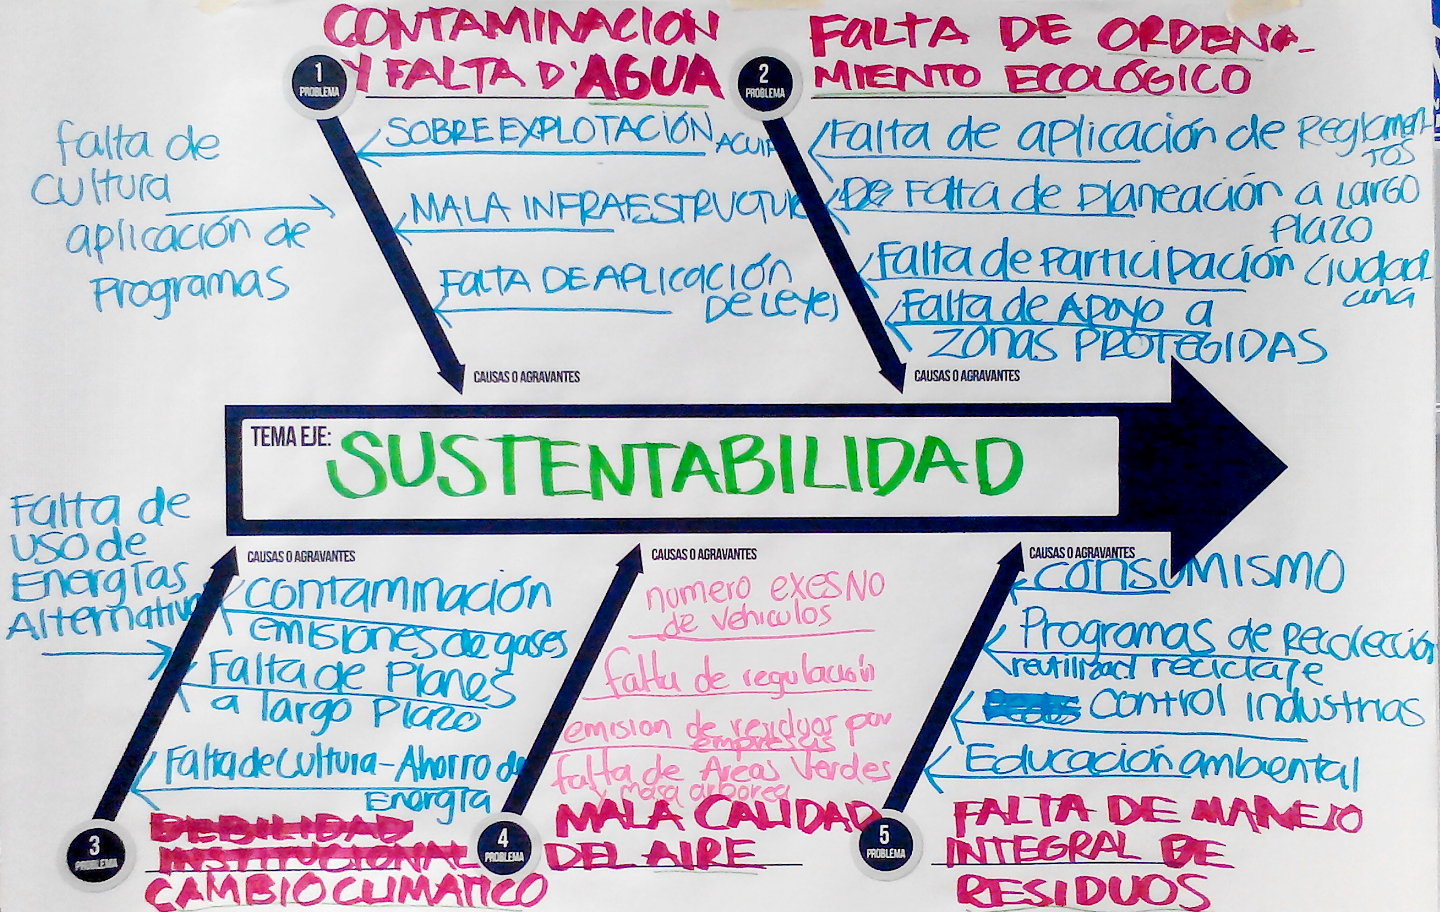 CONTAMINACION
Y FALTA D' AGUA
1
PROBLEMA
SOBREEXPLOTACIÓN
ACUIF
MALA INFRAESTRUCTUR
FALTA DE APLICACIÓN
DE LEYES
falta de
cultura
aplicación de
Programas
CAUSAS O AGRAVANTES
FALTA DE ORDENA-
MIENTO ECOLÓGICO
2
PROBLEMA
Falta de aplicación de Reglamen
TOS
Falta de Planeación a Largo
Plazo
Falta de Participación Ciudad
ana
Falta de APOYO a
ZONAS PROTEGIDAS
CAUSAS O AGRAVANTES
TEMA EJE:
SUSTENTABILIDAD
Falta de
USO de
Energías
Alternativa
CAUSAS O AGRAVANTES
Contaminación
emisiones de gases
Falta de Planes
a largo Plazo
Falta de Cultura - Ahorro de
Energía
3
PROBLEMA
DEBILIDAD
INSTITUCIONAL
CAMBIO CLIMATICO
CAUSAS O AGRAVANTES
numero exesNO
de vehiculos
falta de regulación
emision de residuos por
empresas
falta de Areas Verdes
y masa arborea
4
PROBLEMA
MALA CALIDAD
DEL AIRE
CAUSAS O AGRAVANTES
CONSUMISMO
Programas de Recolección
reutilizad reciclaje
Control Industrias
Educación ambiental
5
PROBLEMA
FALTA DE MANEJO
INTEGRAL DE
RESIDUOS